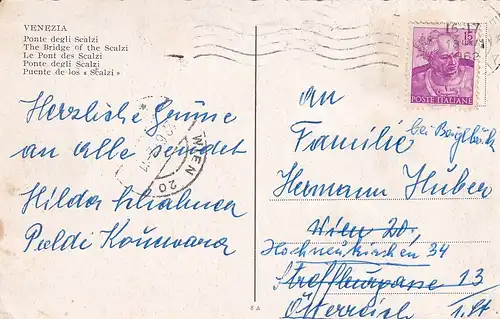 VENEZIA
Ponte degli Scalzi
The Bridge of the Scalzi
Le Pont des Scalzi
Ponte degli Scalzi
Puente de los « Scalzi »
Herzliche Grüsse
an alle sendet
Hilda
Poldi
WIEN 20
16-17
15
POSTE ITALIANE
An
Familie
bei
Hermann Huber
Wien 20,
Hochneukirchen 34
13
Österreich 1. St.
8 A